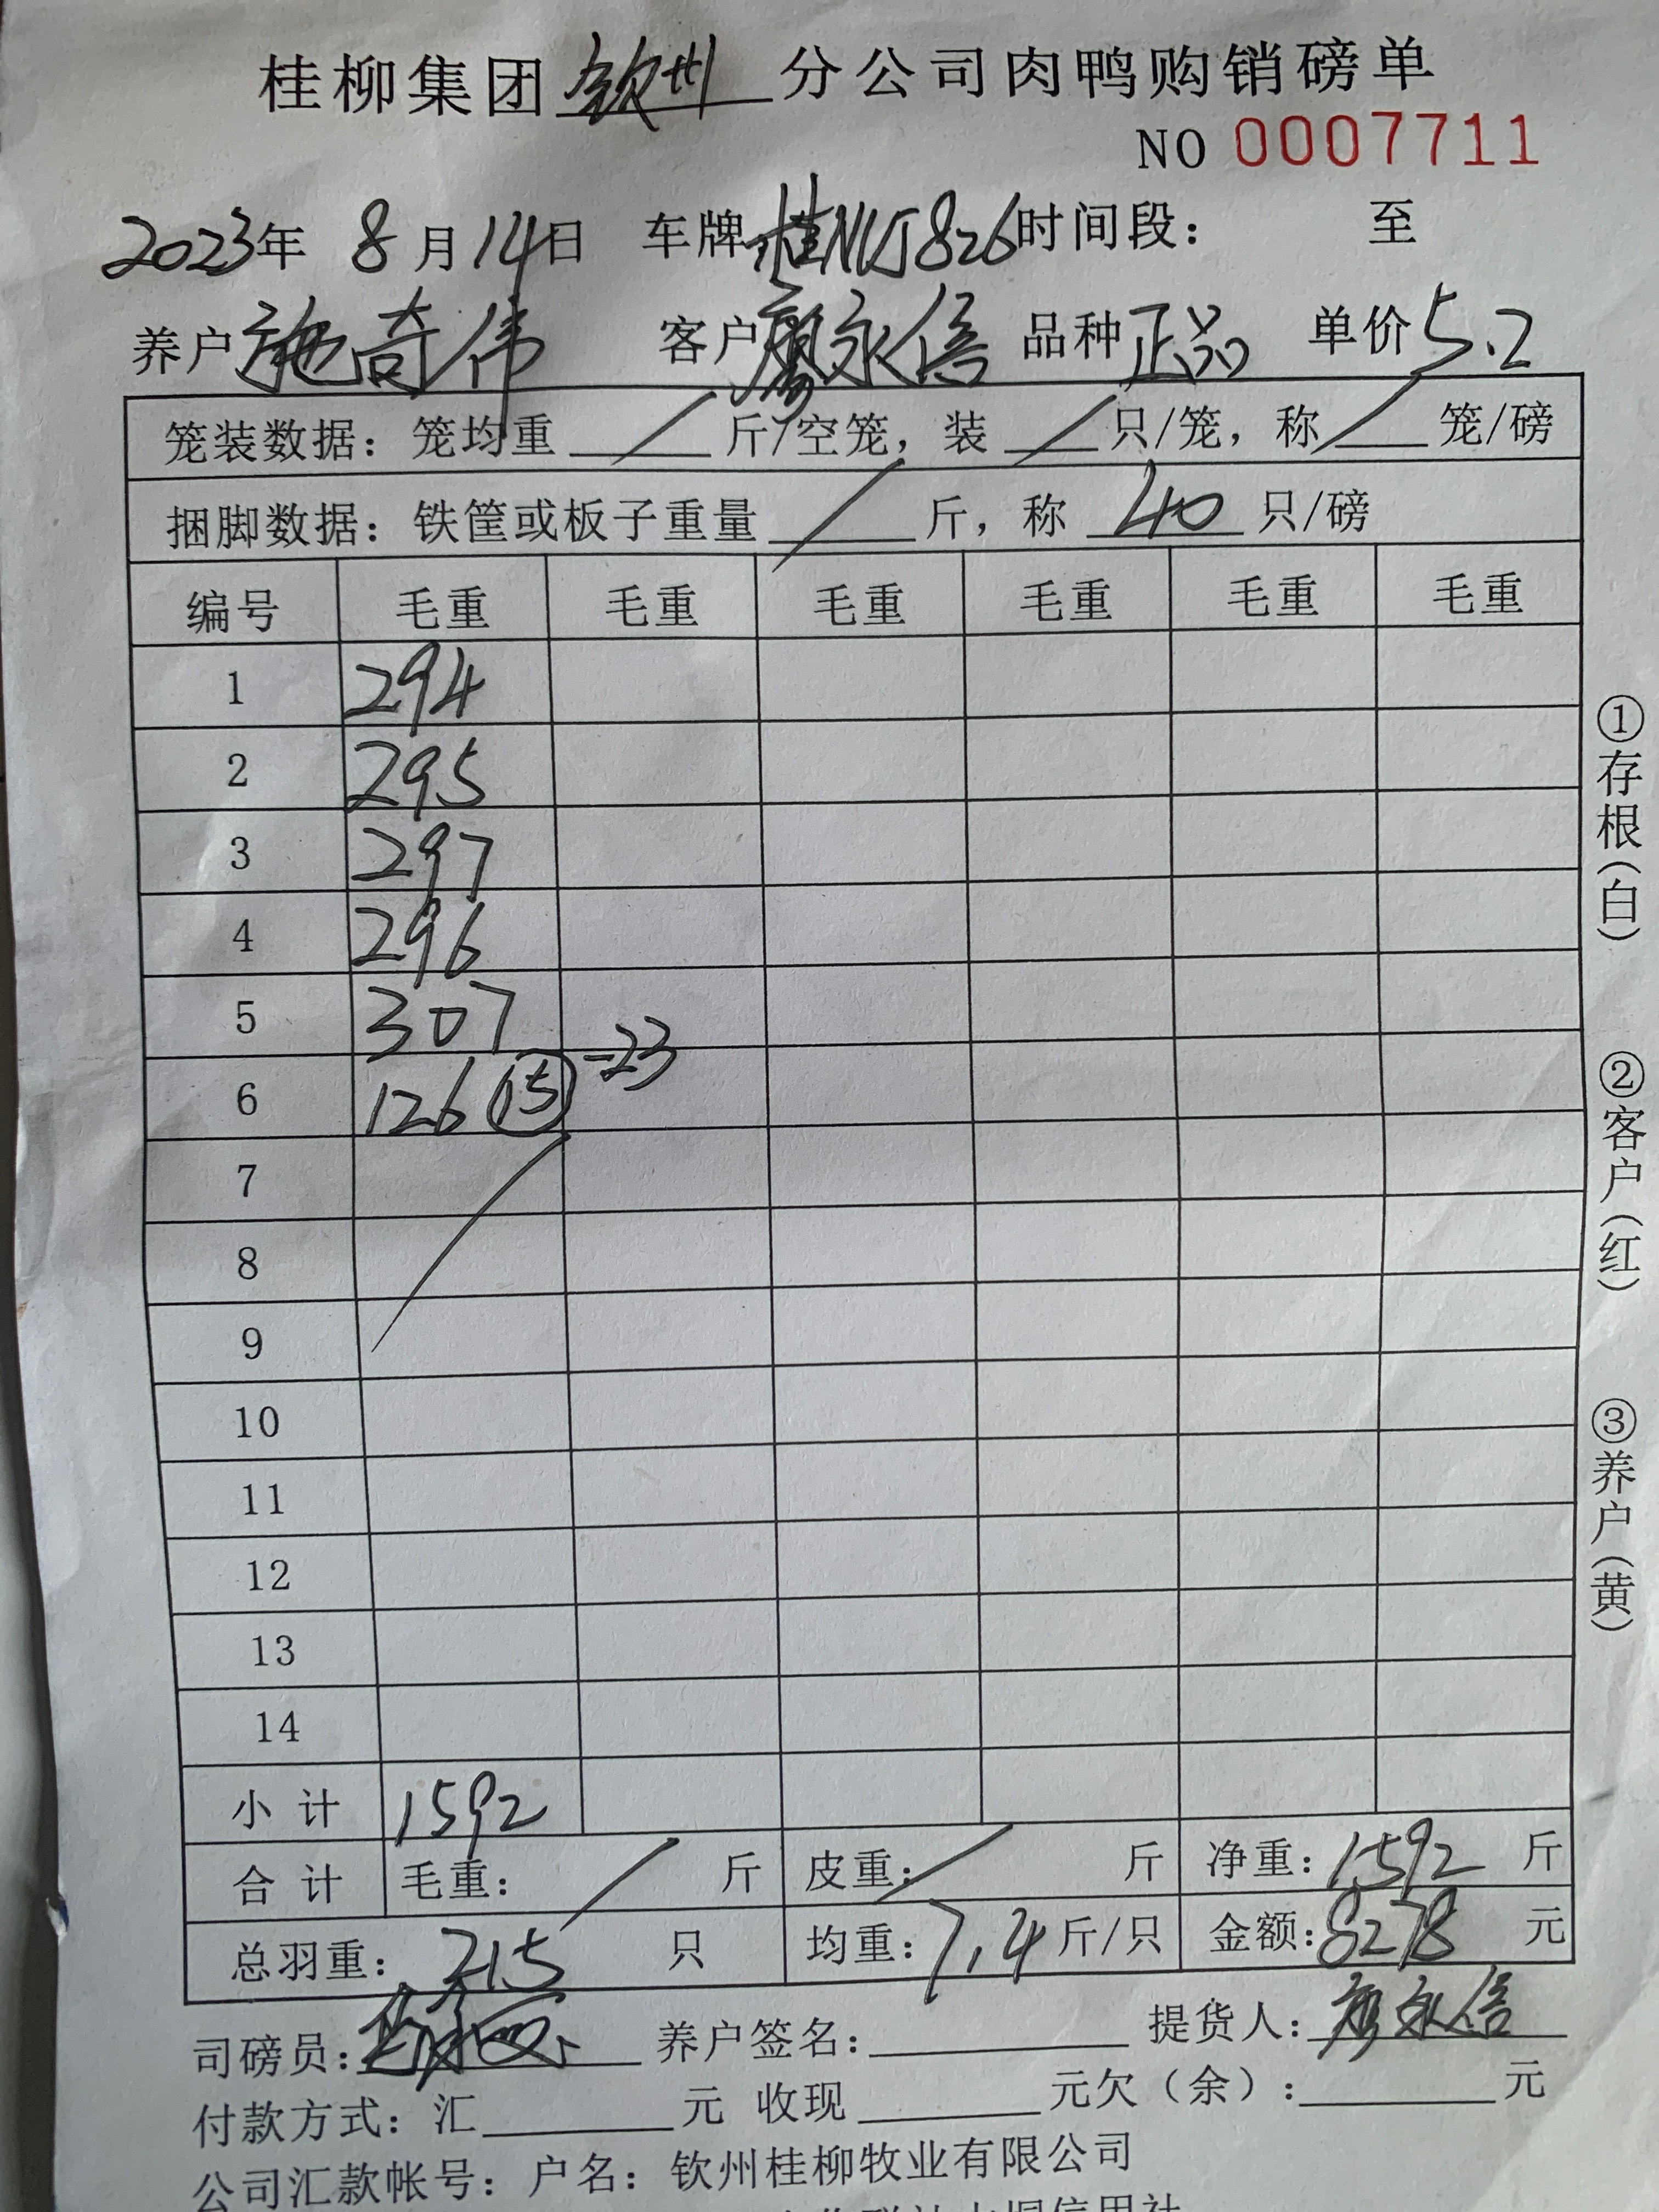 桂柳集团钦州分公司肉鸭购销磅单
NO 0007711
2023年 8月14日 车牌桂NUJ826时间段： 至
养户施奇伟 客户廖永信 品种正品 单价5.2
笼装数据：笼均重／斤/空笼，装／只/笼，称／笼/磅
捆脚数据：铁筐或板子重量／斤，称40只/磅
编号 毛重 毛重 毛重 毛重 毛重 毛重
1 294
2 295
3 297
4 296
5 307
6 126 (15) -23
7
8
9
10
11
12
13
14
小计 1592
合计 毛重：／斤 皮重：／斤 净重：1592斤
总羽重：215只 均重：7.4斤/只 金额：8278元
司磅员： 养户签名： 提货人：廖永信
付款方式：汇 元 收现 元欠（余）： 元
公司汇款帐号：户名：钦州桂柳牧业有限公司
①存根（白）
②客户（红）
③养户（黄）